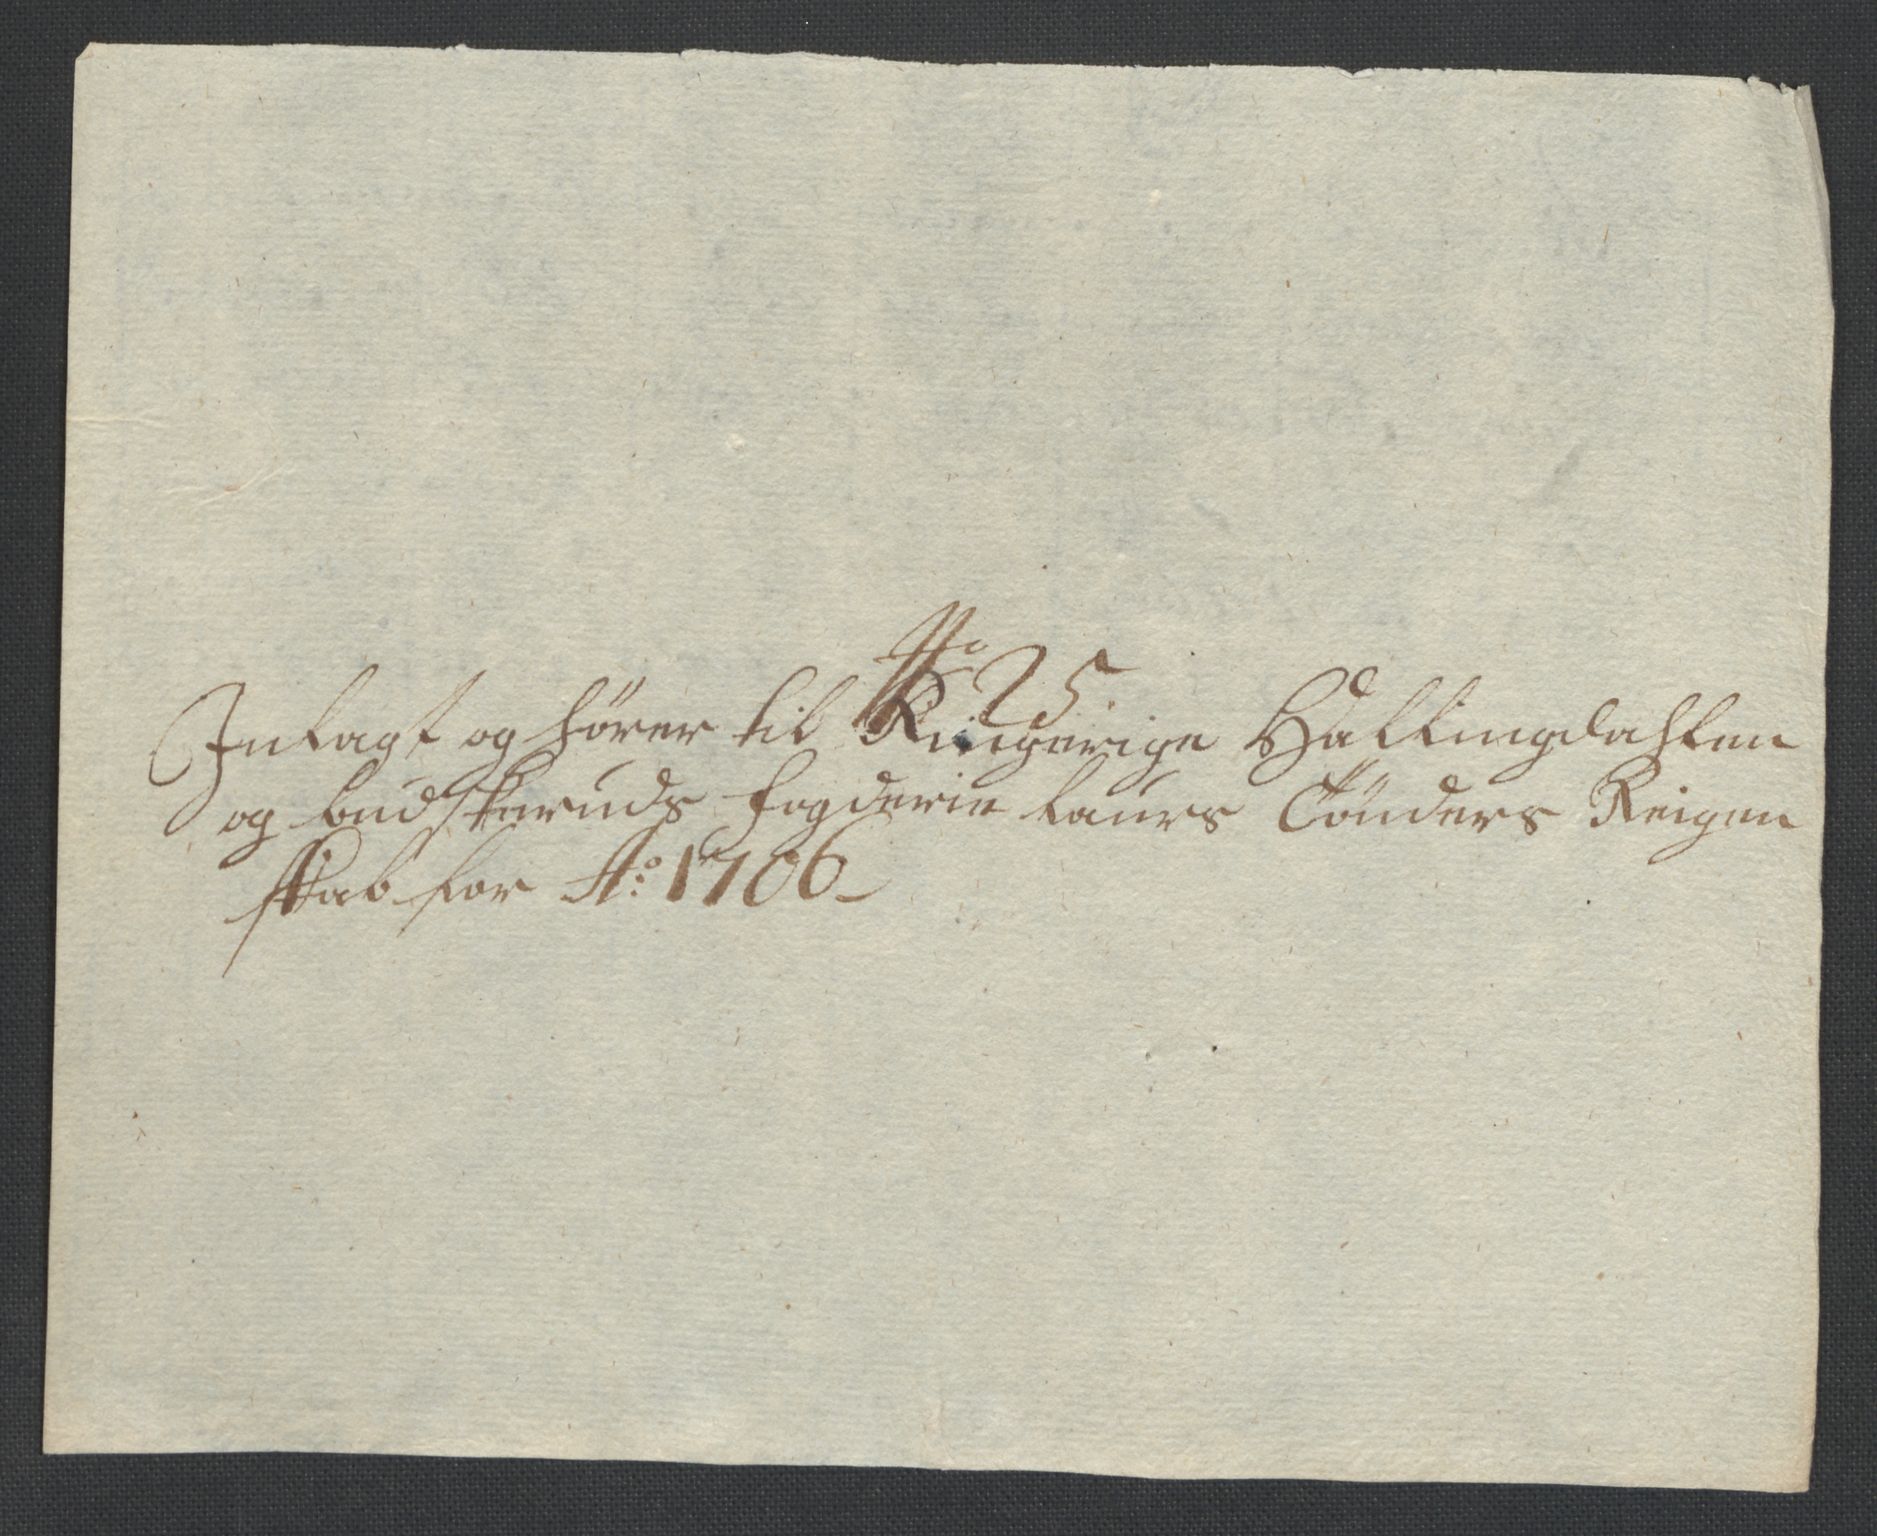 No 25.
Inlagt og hörer til Ringerige Hallingdahlen
og budskeruds fogderie laurs Tönders Reigen
skab for Ao: 1706